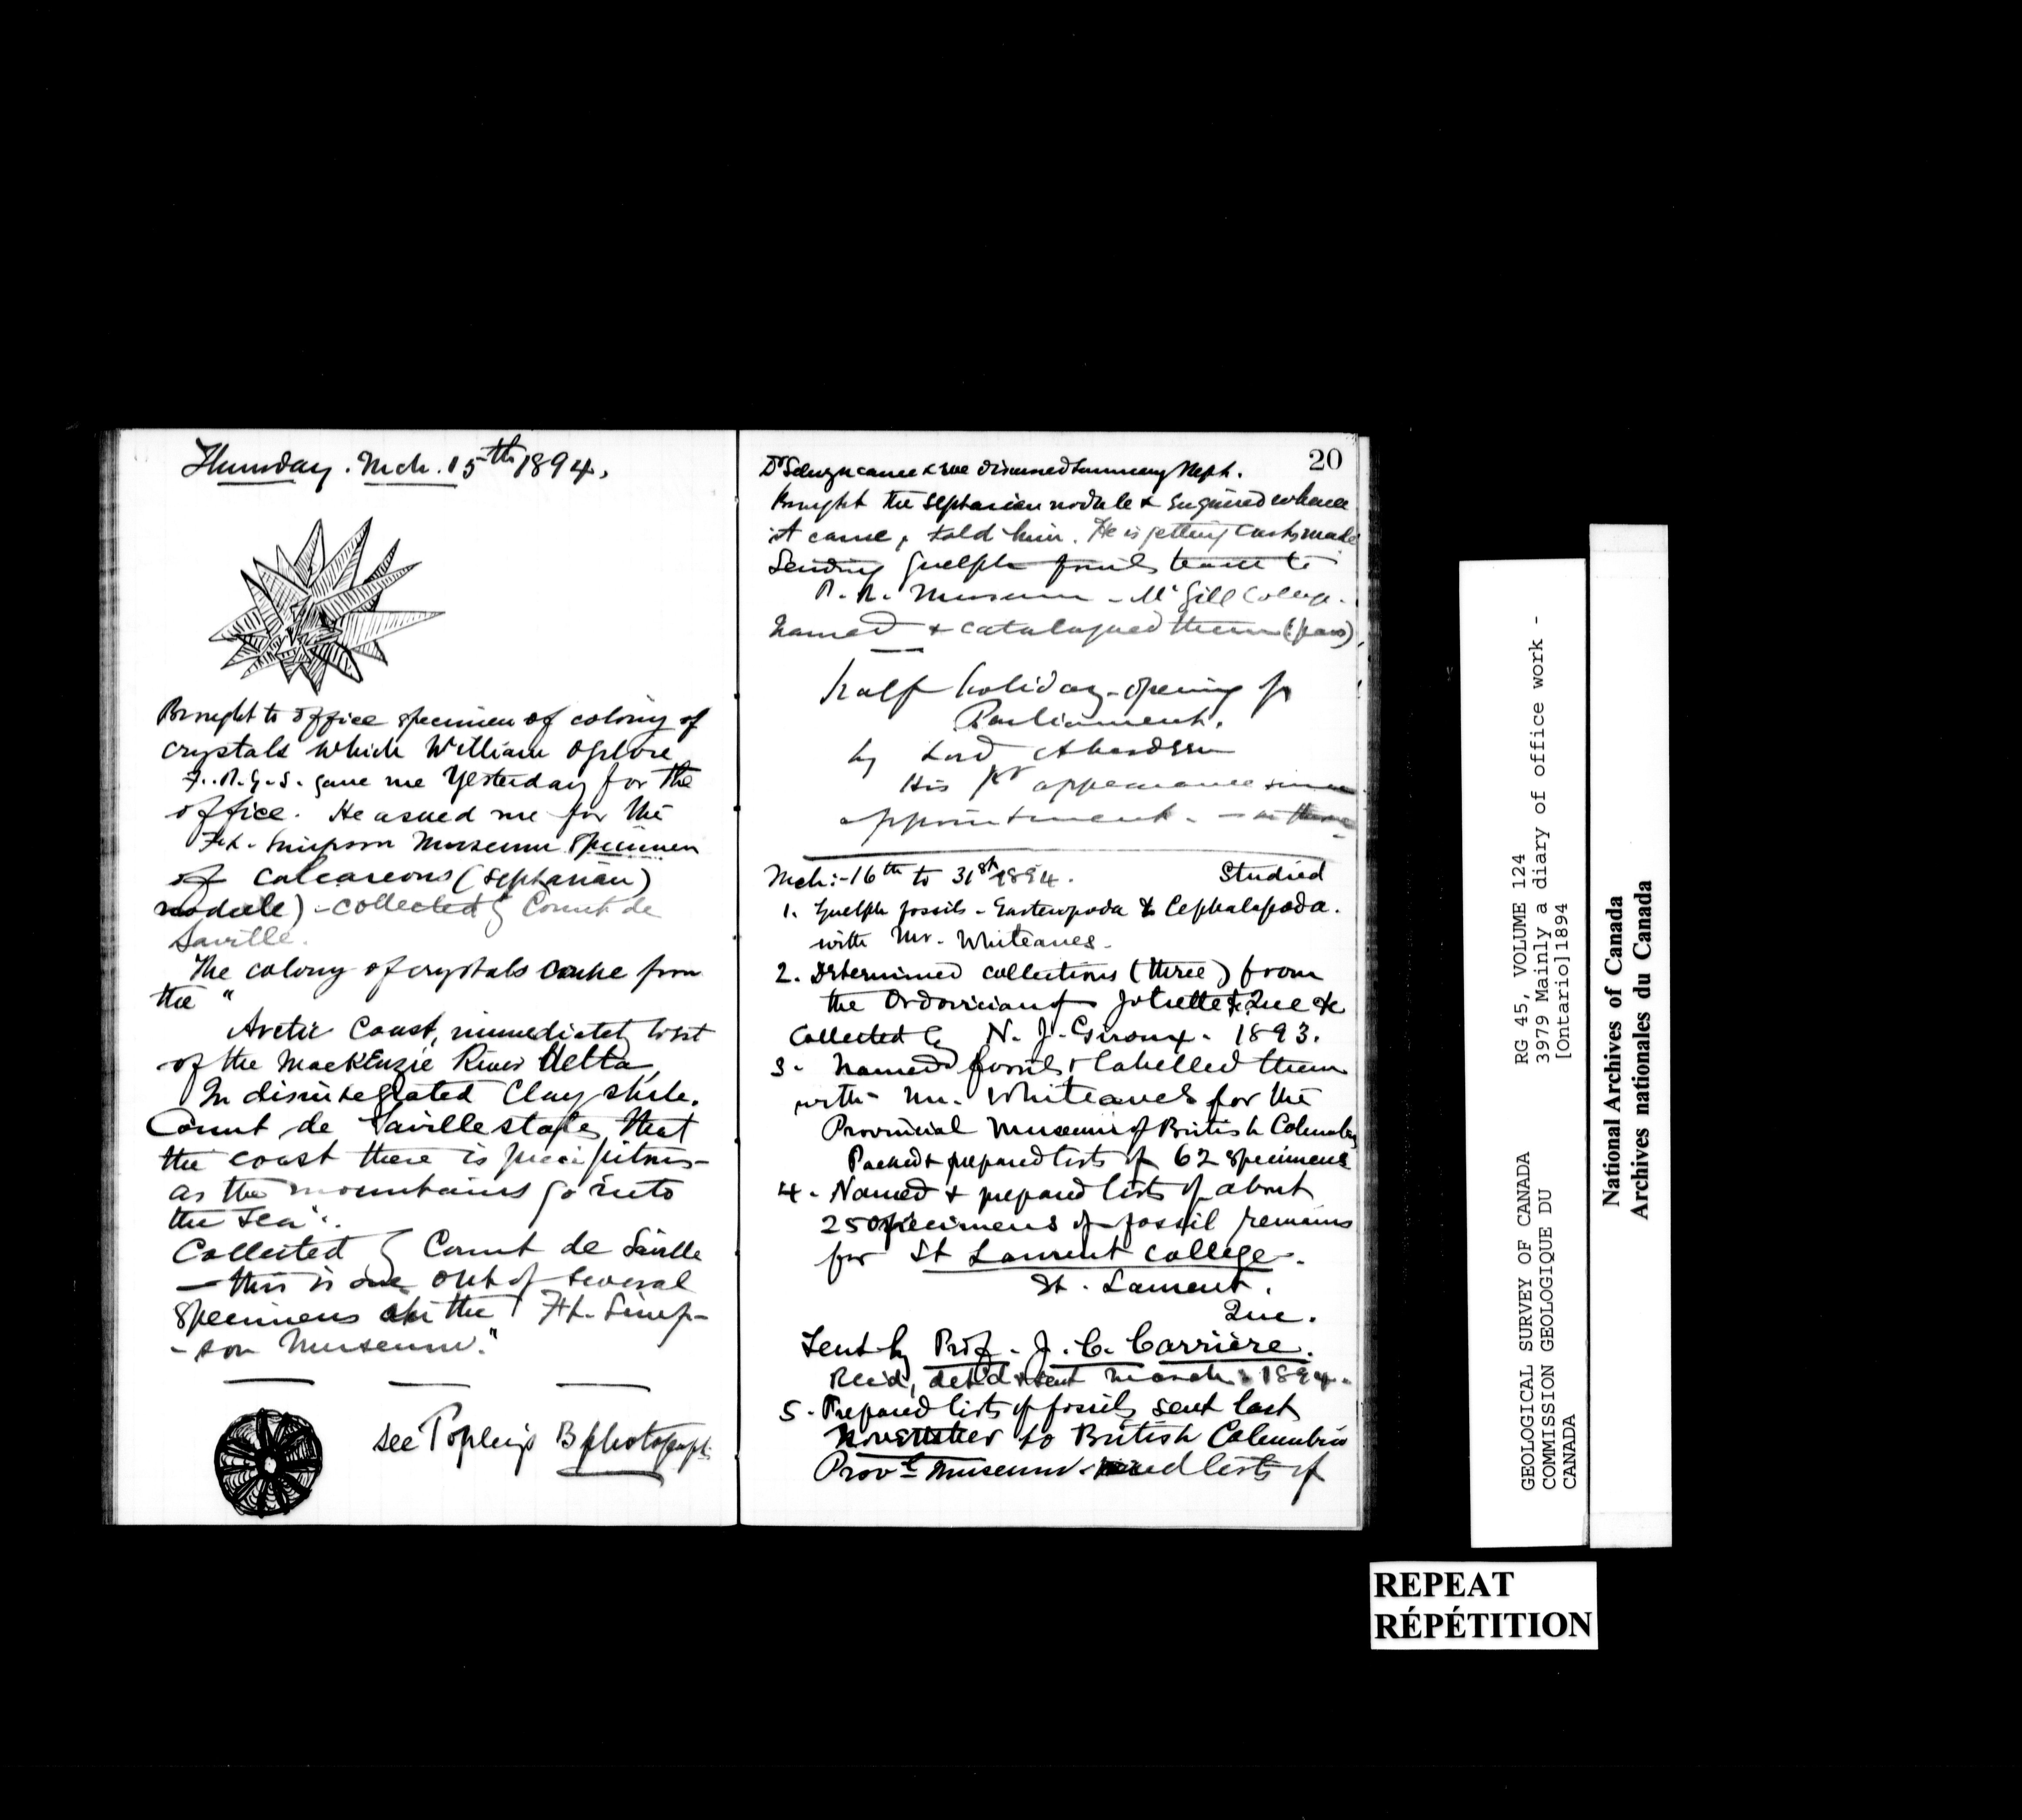 Thursday. Mch. 15th 1894.
Brought to office specimen of colony of
crystals which William Ogilvie
F.R.G.S. gave me yesterday for the
office. He asked me for the
Ft. Simpson Museum specimen
of calcareous (septarian)
nodule) - collected by Count de
Saville.
The colony of crystals came from
the "
Arctic Coast, immediately West
of the MacKenzie River Delta,
In disintegrated Clay slate.
Count de Saville states that
the coast there is precipitous -
as the mountains go into
the sea".
Collected by Count de Saville
- this is one out of several
specimens at the Ft. Simp-
-son Museum."
see Topley's B photograph
20
Dr Selwyn came & we discussed Summary Reph.
Brought the septarian nodule & enquired whence
it came, told him. He is getting casts made
Sending Guelph fossils to
P. R. Museum - McGill College.
Named & catalogued them
half holiday - opening of
Parliament.
by Lord Aberdeen
His 1st appearance since
appointment. -
Mch:- 16th to 31st 1894. Studied
1. Guelph fossils - Gasteropoda & Cephalopoda.
with Mr. Whiteaves.
2. Determined collections (three) from
the Ordovician of Joliette & Que &c
Collected by N. J. Giroux. 1893.
3. Named fossils & labelled them
with Mr. Whiteaves for the
Provincial Museum of British Columbia
Packed & prepared lists of 62 specimens
4. Named & prepared lists of about
250 specimens of fossil remains
for St Laurent College.
St. Laurent.
Que.
Sent by Prof. J. C. Carrière.
Rec'd, det'd & sent March 1894.
5. Prepared lists of fossils sent last
November to British Columbia
Provl Museum. lists of
GEOLOGICAL SURVEY OF CANADA RG 45, VOLUME 124
COMMISSION GEOLOGIQUE DU 3979 Mainly a diary of office work -
CANADA [Ontario]1894
National Archives of Canada
Archives nationales du Canada
REPEAT
RÉPÉTITION